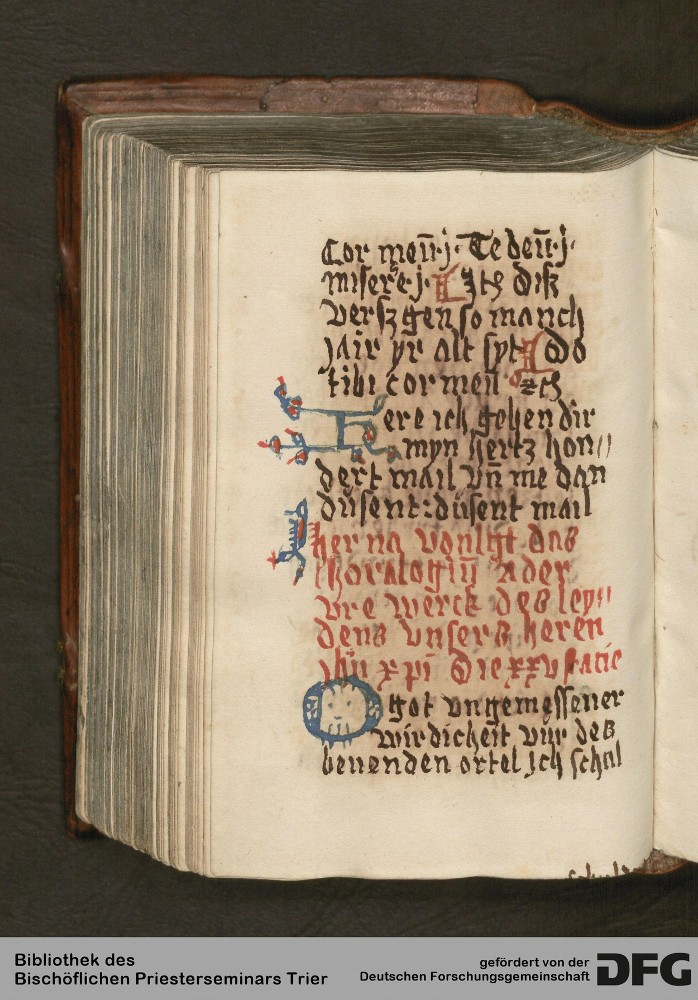 Cor meū·j· Te deū·j·
misere·j· Itꝫ diß
verßgen so manch
jair yr alt syt Do
tibi cor meū
Here ich geben dir
myn hertz hon//
dert mail vn̄ me dan
dusent: dusent mail
her na volgt das
horalogiū ader
vre werck des ley//
dens vnsers heren
jhū xpī Die xxv statie
O got vngemessener
wirdicheit vur des
beuenden ortel Ich schul
Bibliothek des
Bischöflichen Priesterseminars Trier
gefördert von der
Deutschen Forschungsgemeinschaft
DFG